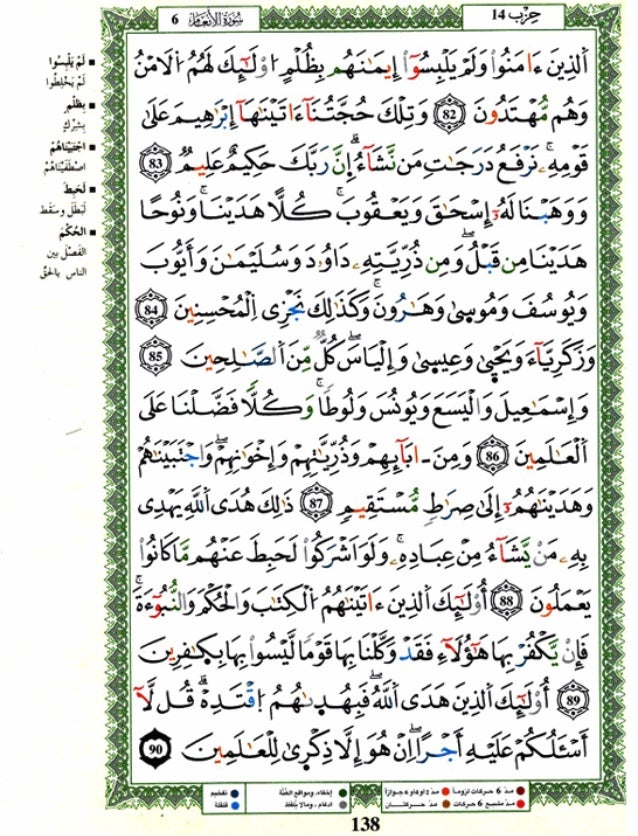 حِزْب 14
سُورَةُ الأَنْعَام 6
اَ۬لذِينَ ءَامَنُواْ وَلَمْ يَلْبِسُوٓاْ إِيمَٰنَهُم بِظُلْمٍ ا۟وْلَٰٓئِكَ لَهُمُ اُ۬لَامْنُ
وَهُم مُّهْتَدُونَ 82 وَتِلْكَ حُجَّتُنَآ ءَاتَيْنَٰهَآ إِبْرَٰهِيمَ عَلَىٰ
قَوْمِهِۦ نَرْفَعُ دَرَجَٰتِ مَن نَّشَآءُ إِنَّ رَبَّكَ حَكِيمٌ عَلِيمٌ 83
وَوَهَبْنَا لَهُۥٓ إِسْحَٰقَ وَيَعْقُوبَ كُلًّا هَدَيْنَا وَنُوحًا
هَدَيْنَا مِن قَبْلُ وَمِن ذُرِّيَّتِهِۦ دَاوُۥدَ وَسُلَيْمَٰنَ وَأَيُّوبَ
وَيُوسُفَ وَمُوسىٰ وَهَٰرُونَ وَكَذَٰلِكَ نَجْزِى اِ۬لْمُحْسِنِينَ 84
وَزَكَرِيَّآءَ وَيَحْيىٰ وَعِيسىٰ وَإِلْيَاسَ كُلٌّ مِّنَ اَ۬لصَّٰلِحِينَ 85
وَإِسْمَٰعِيلَ وَالْيَسَعَ وَيُونُسَ وَلُوطًا وَكُلًّا فَضَّلْنَا عَلَى
اَ۬لْعَٰلَمِينَ 86 وَمِنَ ـ ابَآئِهِمْ وَذُرِّيَّٰتِهِمْ وَإِخْوَٰنِهِمْ وَاجْتَبَيْنَٰهُمْ
وَهَدَيْنَٰهُمُۥٓ إِلَىٰ صِرَٰطٍ مُّسْتَقِيمٍ 87 ذَٰلِكَ هُدَى اَ۬للَّهِ يَهْدِى
بِهِۦ مَنْ يَّشَآءُ مِنْ عِبَادِهِۦ وَلَوَ اَشْرَكُواْ لَحَبِطَ عَنْهُم مَّا كَانُواْ
يَعْمَلُونَ 88 أُوْلَٰٓئِكَ اَ۬لذِينَ ءَاتَيْنَٰهُمُ اُ۬لْكِتَٰبَ وَالْحُكْمَ وَالنُّبُوٓءَةَ
فَإِنْ يَّكْفُرْ بِهَا هَٰٓؤُلَآءِ فَقَدْ وَكَّلْنَا بِهَا قَوْمًا لَّيْسُواْ بِهَا بِكَٰفِرِينَ
89 أُوْلَٰٓئِكَ اَ۬لذِينَ هَدَى اَ۬للَّهُ فَبِهُدَىٰهُمُ اُ۪قْتَدِهْ قُل لَّآ
أَسْـَٔلُكُمْ عَلَيْهِ أَجْرًا اِنْ هُوَ إِلَّا ذِكْرىٰ لِلْعَٰلَمِينَ 90
لَمْ يَلْبِسُوا
لَمْ يَخْلِطُوا
بِظُلْمٍ
بِشِرْكٍ
اجْتَبَيْنَاهُمْ
اصْطَفَيْنَاهُمْ
لَحَبِطَ
لَبَطَلَ وسَقَط
الحُكْمَ
الفَصْلَ بين
الناس بِالحَقِّ
مدّ 6 حركات لزوماً
مدّ 2 او 4 او 6 جوازاً
إخفاء، ومواقع الغُنَّة
تفخيم
مدّ مشبع 6 حركات
مدّ حركتــان
ادغام، وما لا يُلفَظ
قلقلة
138